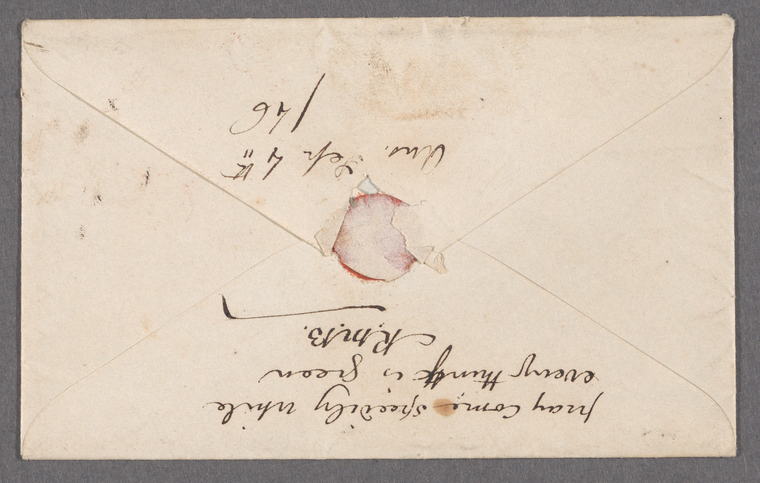 pray come speedily while
every thing is green
R.M.B.
Ans. Sep. 4th
/46